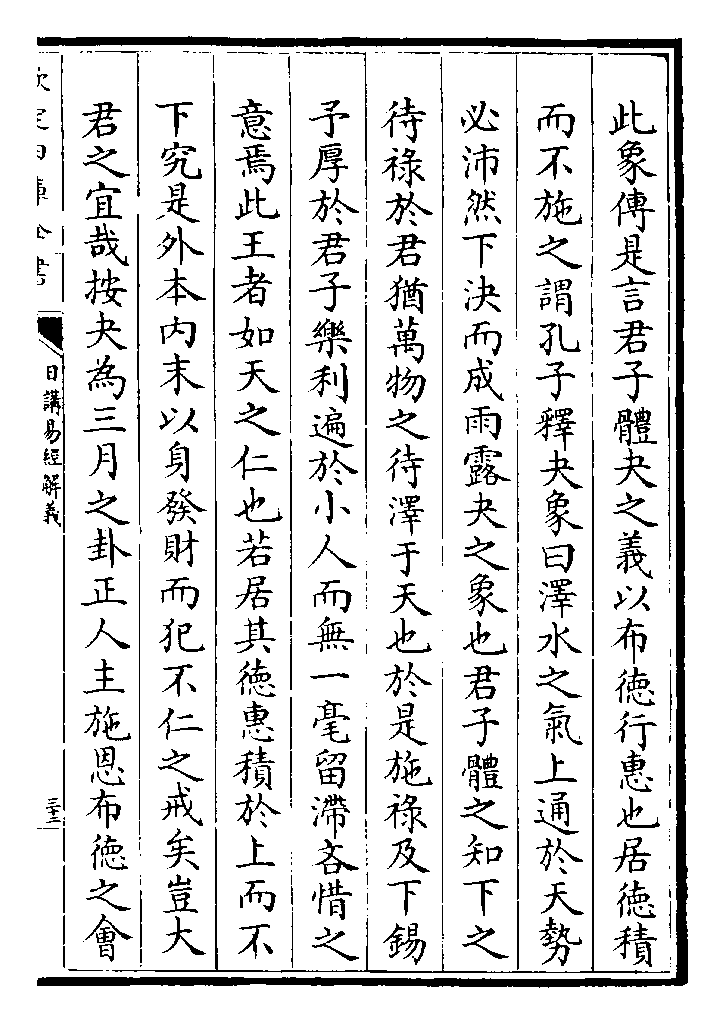 此象傳是言君子體夬之義以布徳行惠也居徳積
而不施之謂孔子釋夬象曰澤水之氣上通於天勢
必沛然下決而成雨露夬之象也君子體之知下之
待祿於君猶萬物之待澤于天也於是施祿及下錫
予厚於君子樂利遍於小人而無一毫留滯吝惜之
意焉此王者如天之仁也若居其徳惠積於上而不
下究是外本内末以身發財而犯不仁之戒矣豈大
君之宜哉按夬為三月之卦正人主施恩布徳之會
欽定四庫全書
日講易經解義
三十二